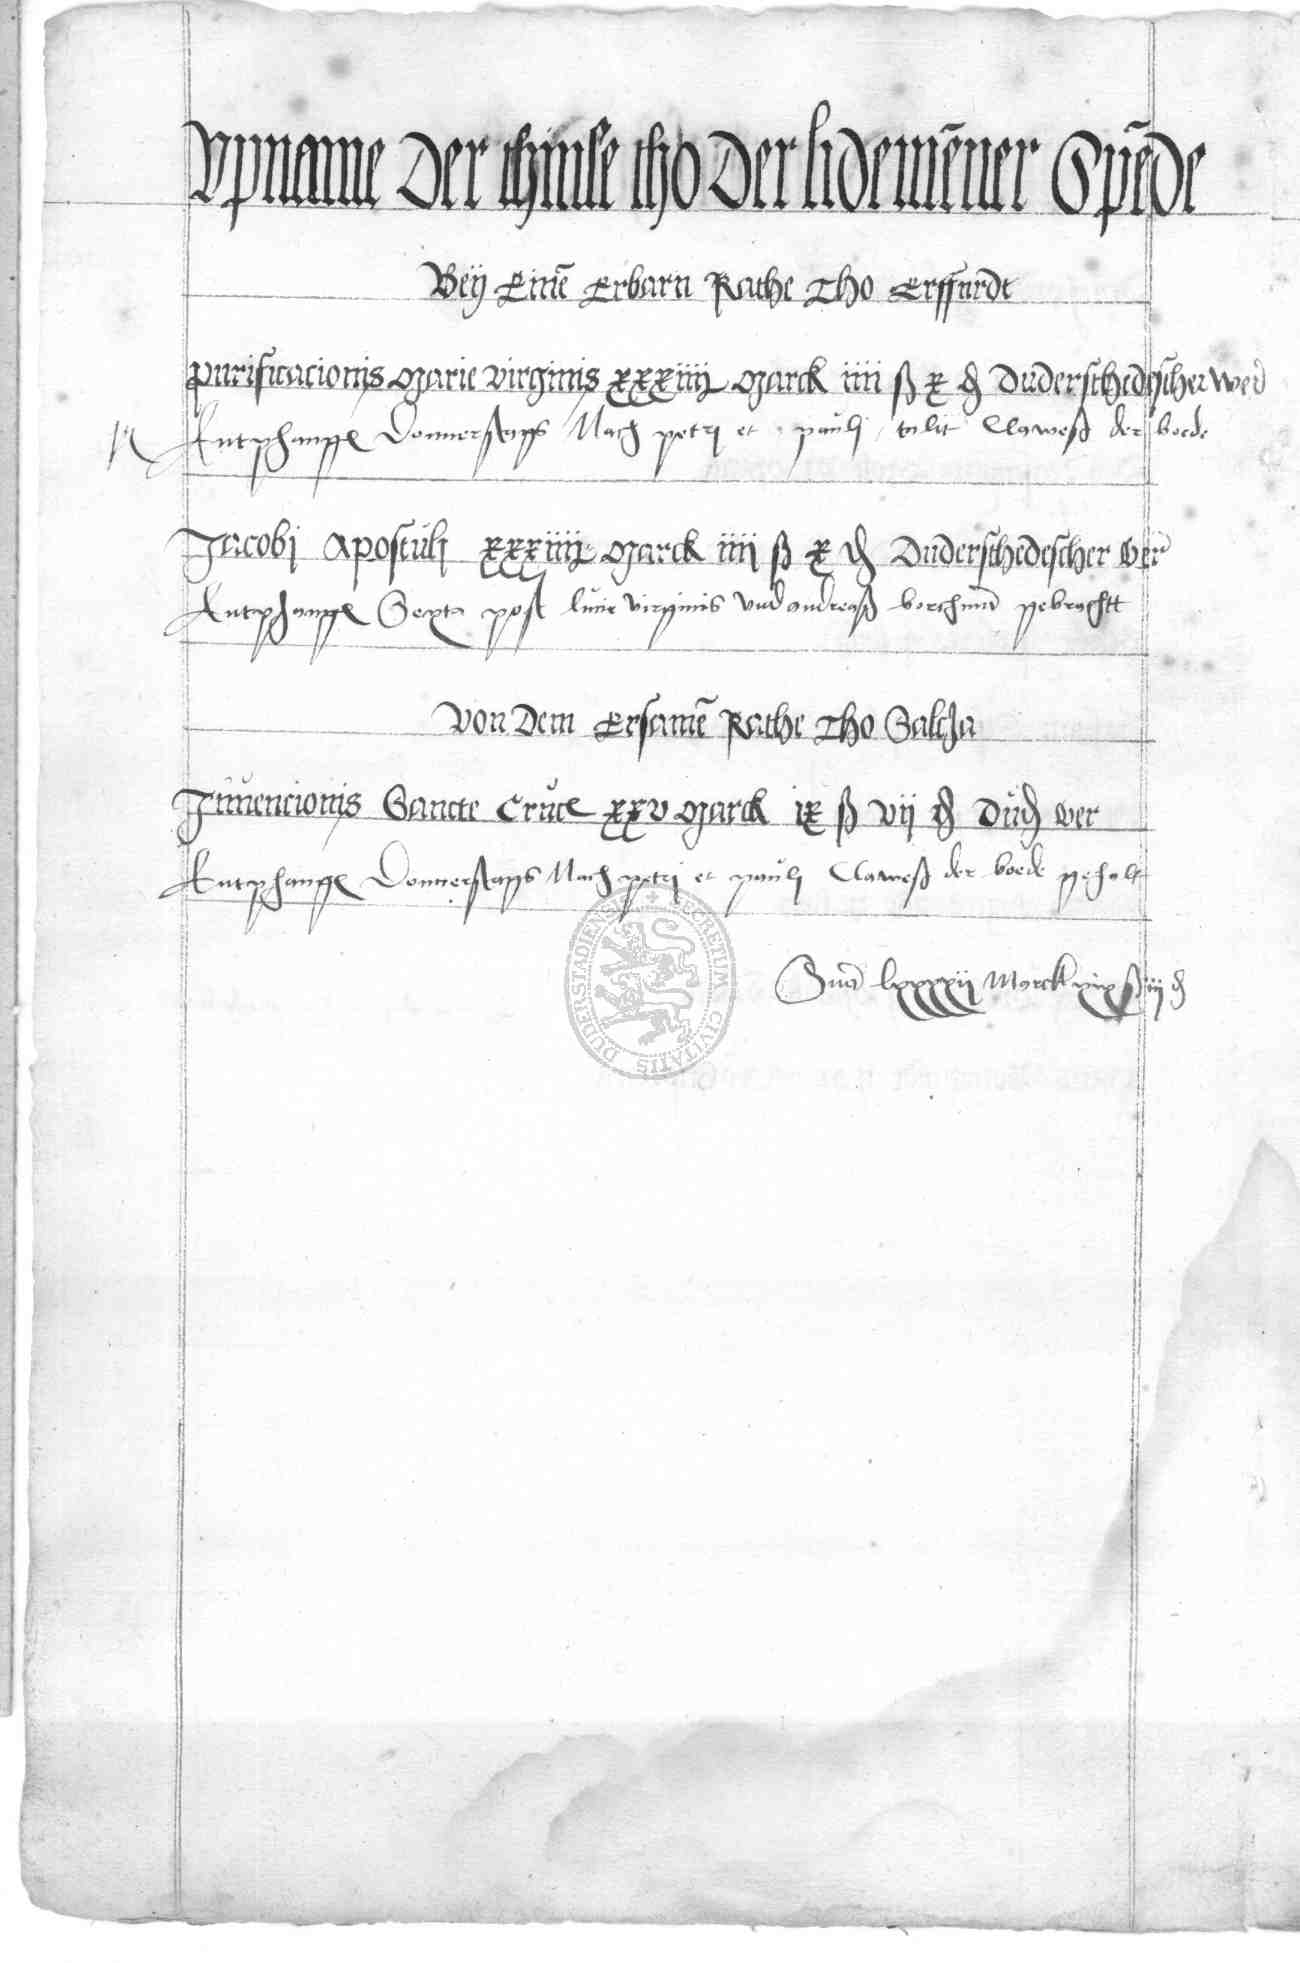 Vpname Der thinse tho Der lidemēner Spēde
Beÿ Einē Erbarn Rathe Tho Erffurdt
Purificacionis Marie virginis xxxiiii Marck iiii ß x ₰ Duderschedescher wer
Entphangen Donnerstags Nach petri et pauli tulit Claweß der boede
Jacobi Apostuli xxxiiii Marck iiii ß x ₰ Duderschedescher wer
Entphangen Sexta post lucie virginis vnd andreaß gebracht
Von Dem Ersamē Rathe Tho Saltza
Inuencionis Sancte Cruce xxv Marck ix ß vij ₰ Dud wer
Entphangen Donnerstags Nach petri et pauli Claweß der boede geholt
Sum̄a lxxxxiij Marck xix ß iij ₰
SECRETUM CIVITATIS DUDERSTADIENSIS